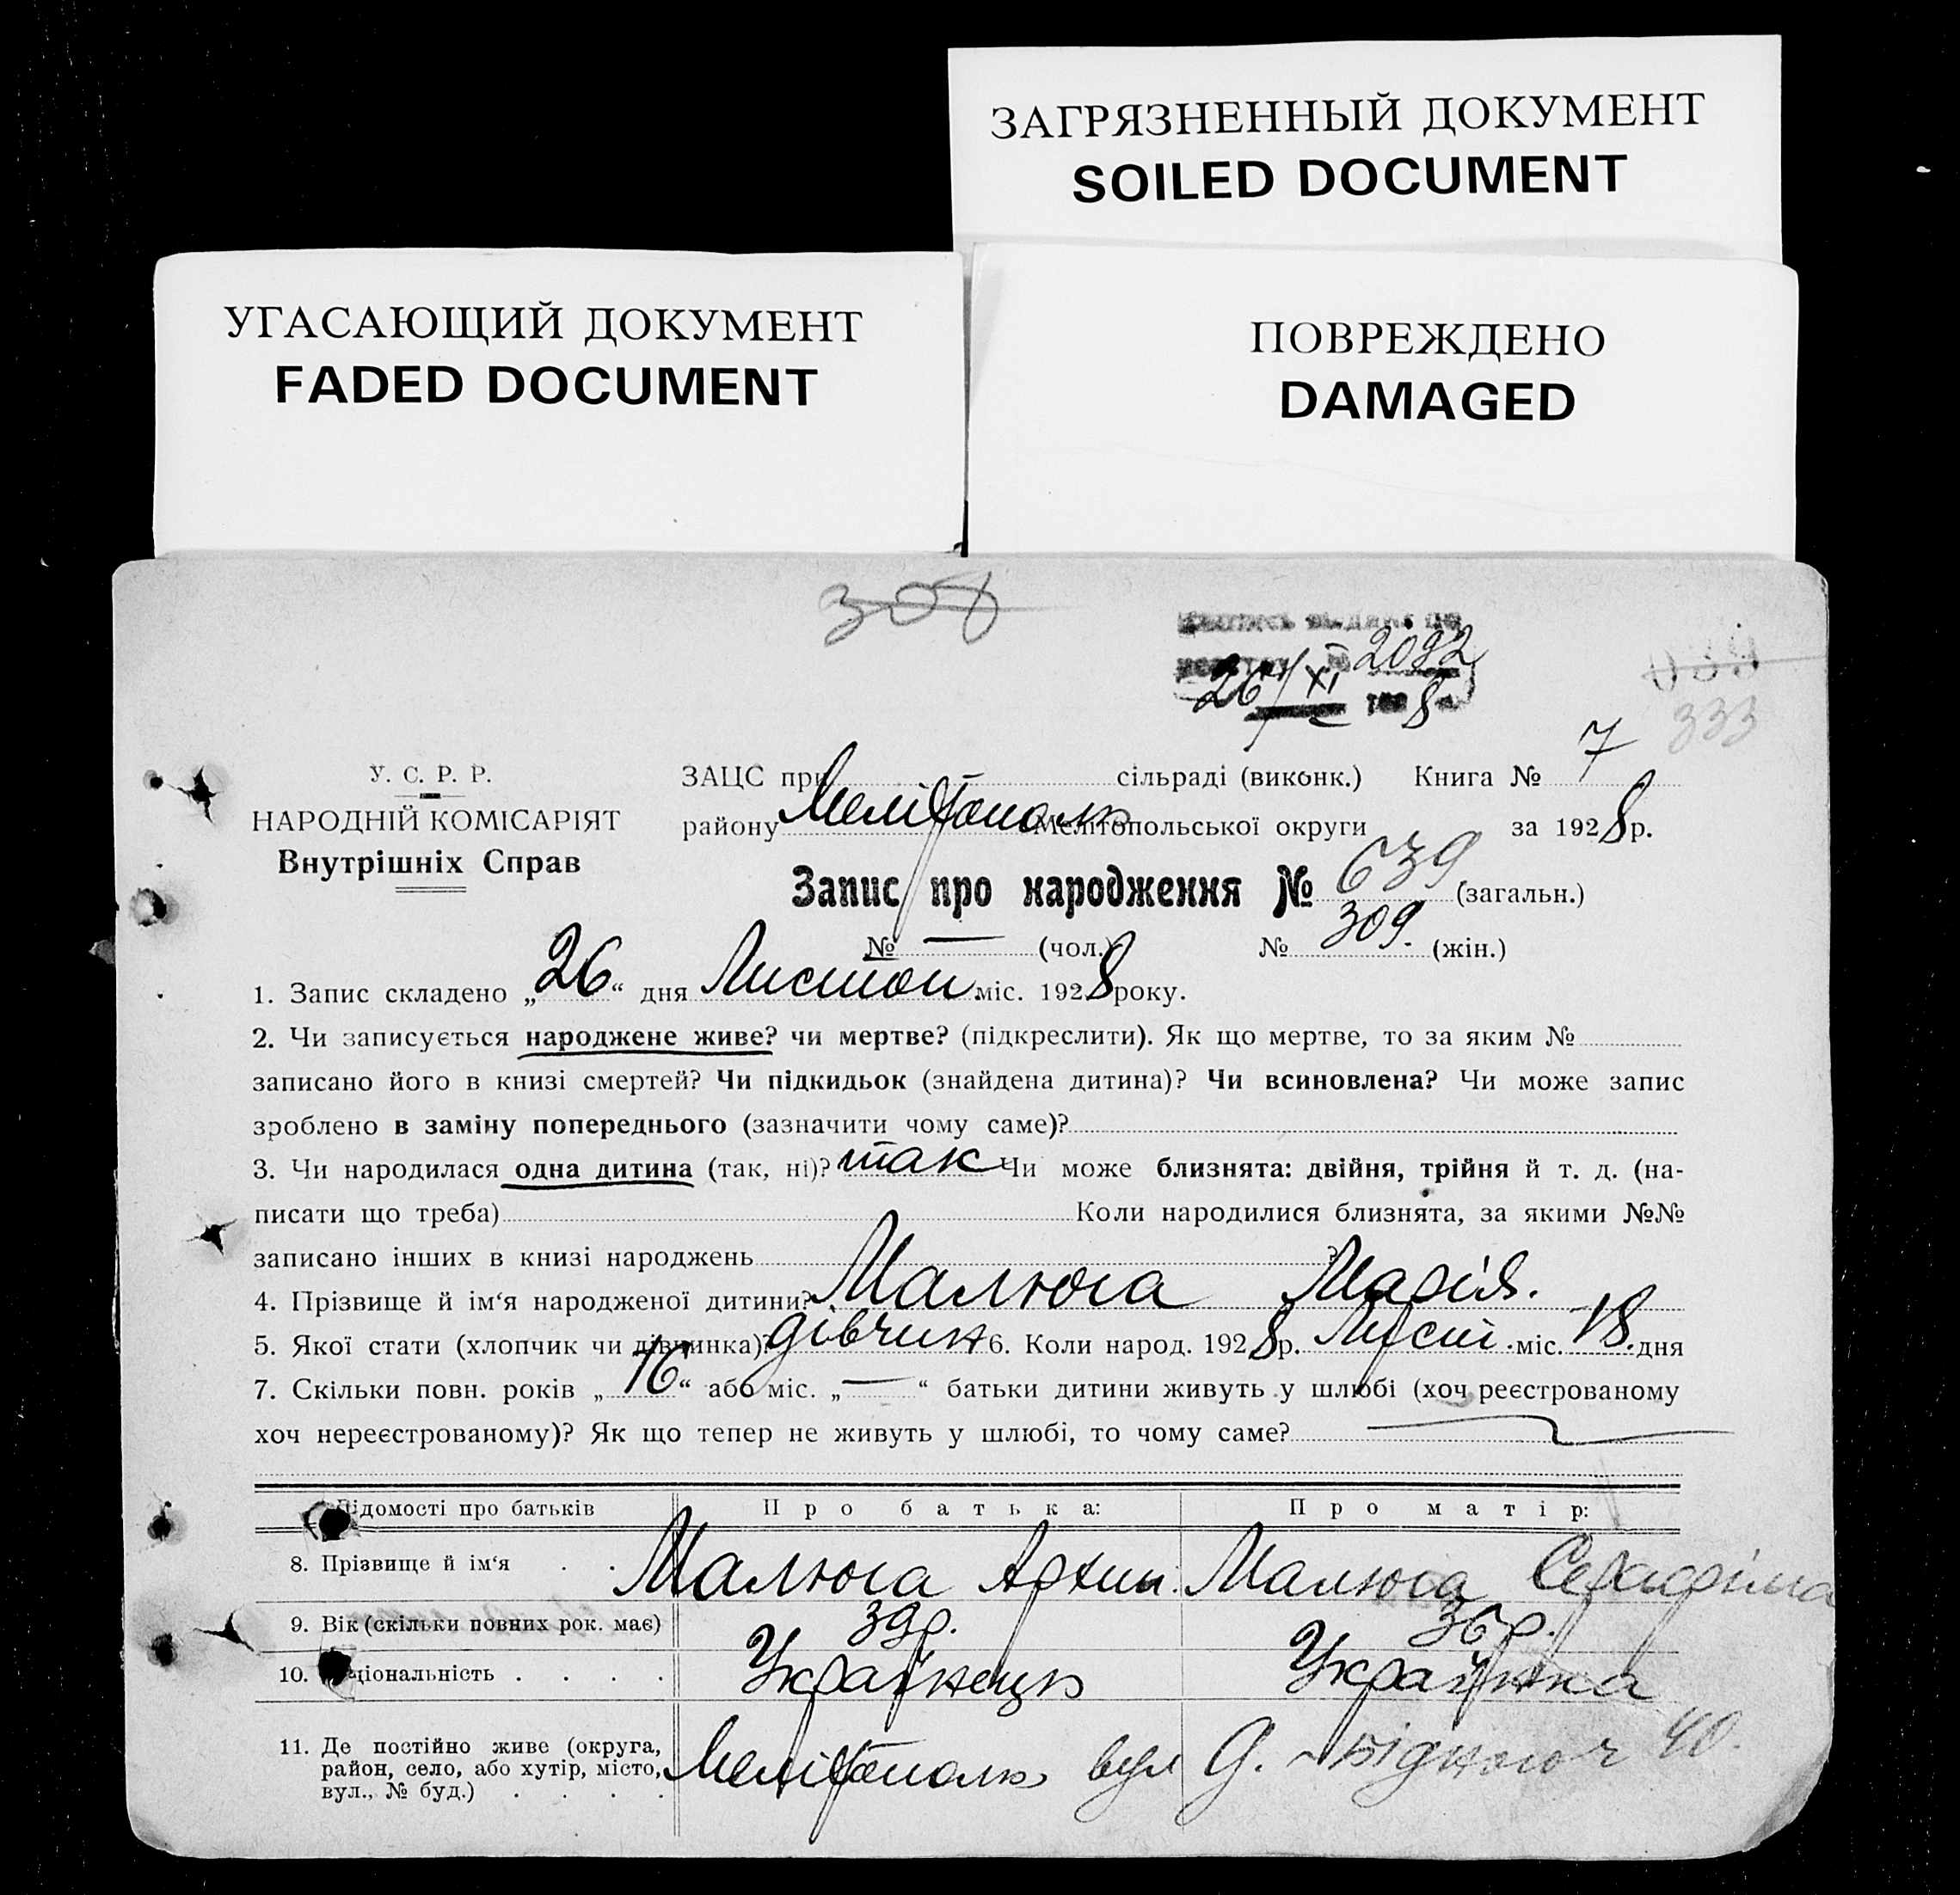 ЗАГРЯЗНЕННЫЙ ДОКУМЕНТ
SOILED DOCUMENT
УГАСАЮЩИЙ ДОКУМЕНТ
FADED DOCUMENT
ПОВРЕЖДЕНО
DAMAGED
308
2092
26/XI 8
333
У. С. Р. Р.
НАРОДНІЙ КОМІСАРІЯТ
Внутрішніх Справ
ЗАЦС при сільраді (виконк.) Книга № 7
району Мелітополь Мелітопольської округи за 1928 р.
Запис про народження № 639 (загальн.)
№ — (чол.) № 309. (жін.)
1. Запис складено „26“ дня Листоп. міс. 1928 року.
2. Чи записується народжене живе? чи мертве? (підкреслити). Як що мертве, то за яким №
записано його в книзі смертей? Чи підкидьок (знайдена дитина)? Чи всиновлена? Чи може запис
зроблено в заміну попереднього (зазначити чому саме)?
3. Чи народилася одна дитина (так, ні)? так Чи може близнята: двійня, трійня й т. д. (на-
писати що треба) Коли народилися близнята, за якими №№
записано інших в книзі народжень ?
4. Прізвище й ім‘я народженої дитини? Малюга Марія.
5. Якої стати (хлопчик чи дівчинка)? дівчин 6. Коли народ. 1928 р. Лист. міс. 18. дня
7. Скільки повн. років „16“ або міс. „—“ батьки дитини живуть у шлюбі (хоч реєстрованому
хоч нереєстрованому)? Як що тепер не живуть у шлюбі, то чому саме?
Відомості про батьків Про батька: Про матір:
8. Прізвище й ім‘я . . Малюга Архип. Малюга Серафіма
9. Вік (скільки повних рок. має) 39р. 36р.
10. Національність . . . . Українець Українка
11. Де постійно живе (округа,
район, село, або хутір, місто, Мелітополь вул Д. Бідного 40.
вул., № буд.) . . . .